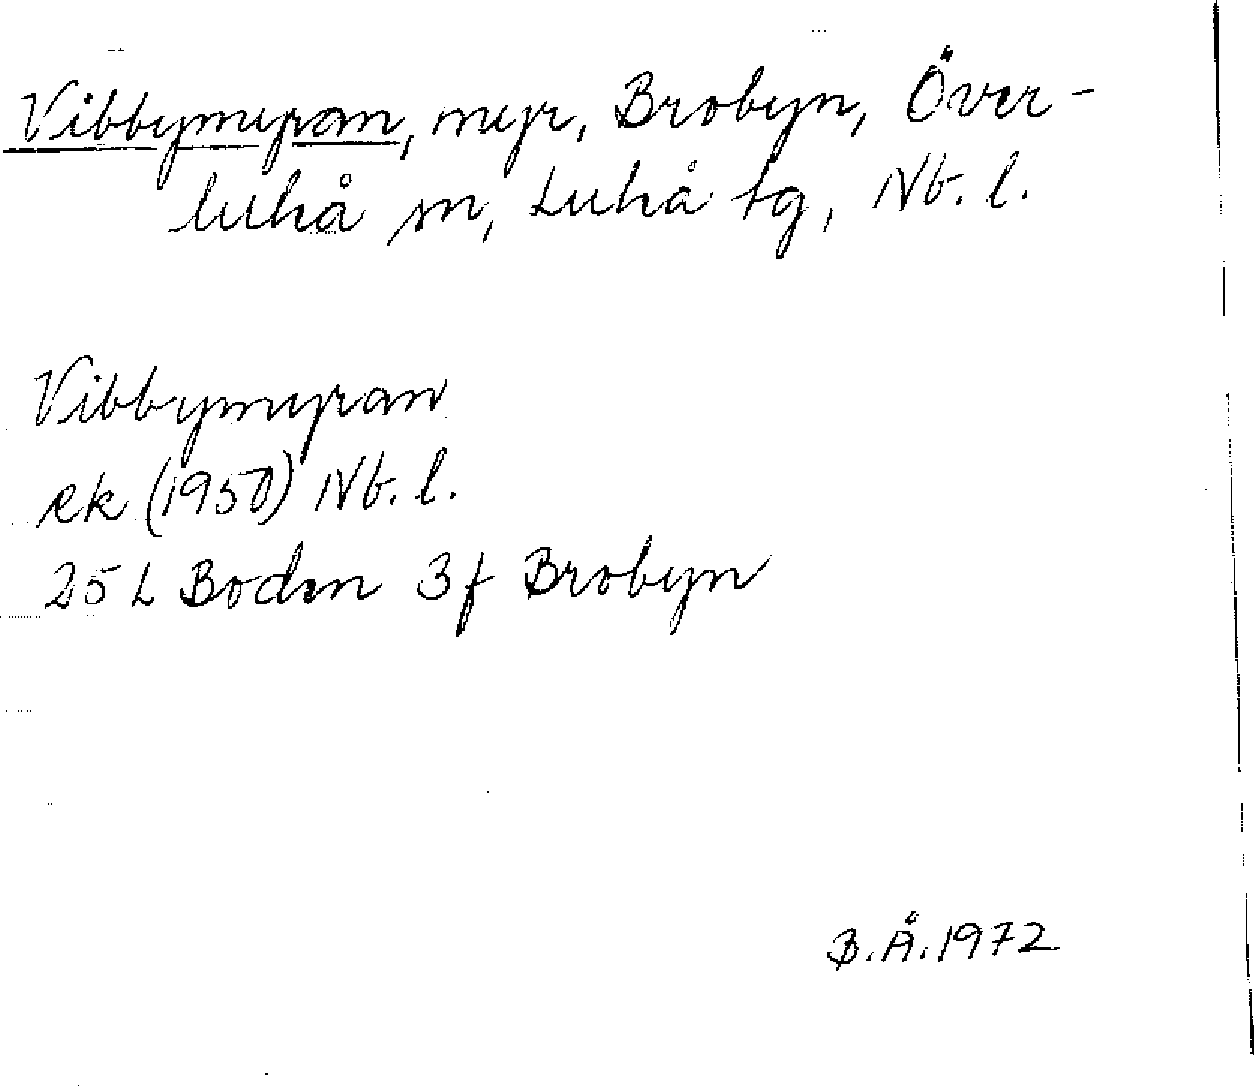 Vibbymyran, myr, Brobyn, Över-
luleå sn, Luleå tg, Nb. l.
Vibbymyran
ek (1950) Nb. l.
25 L Boden 3f Brobyn
B.Å.1972